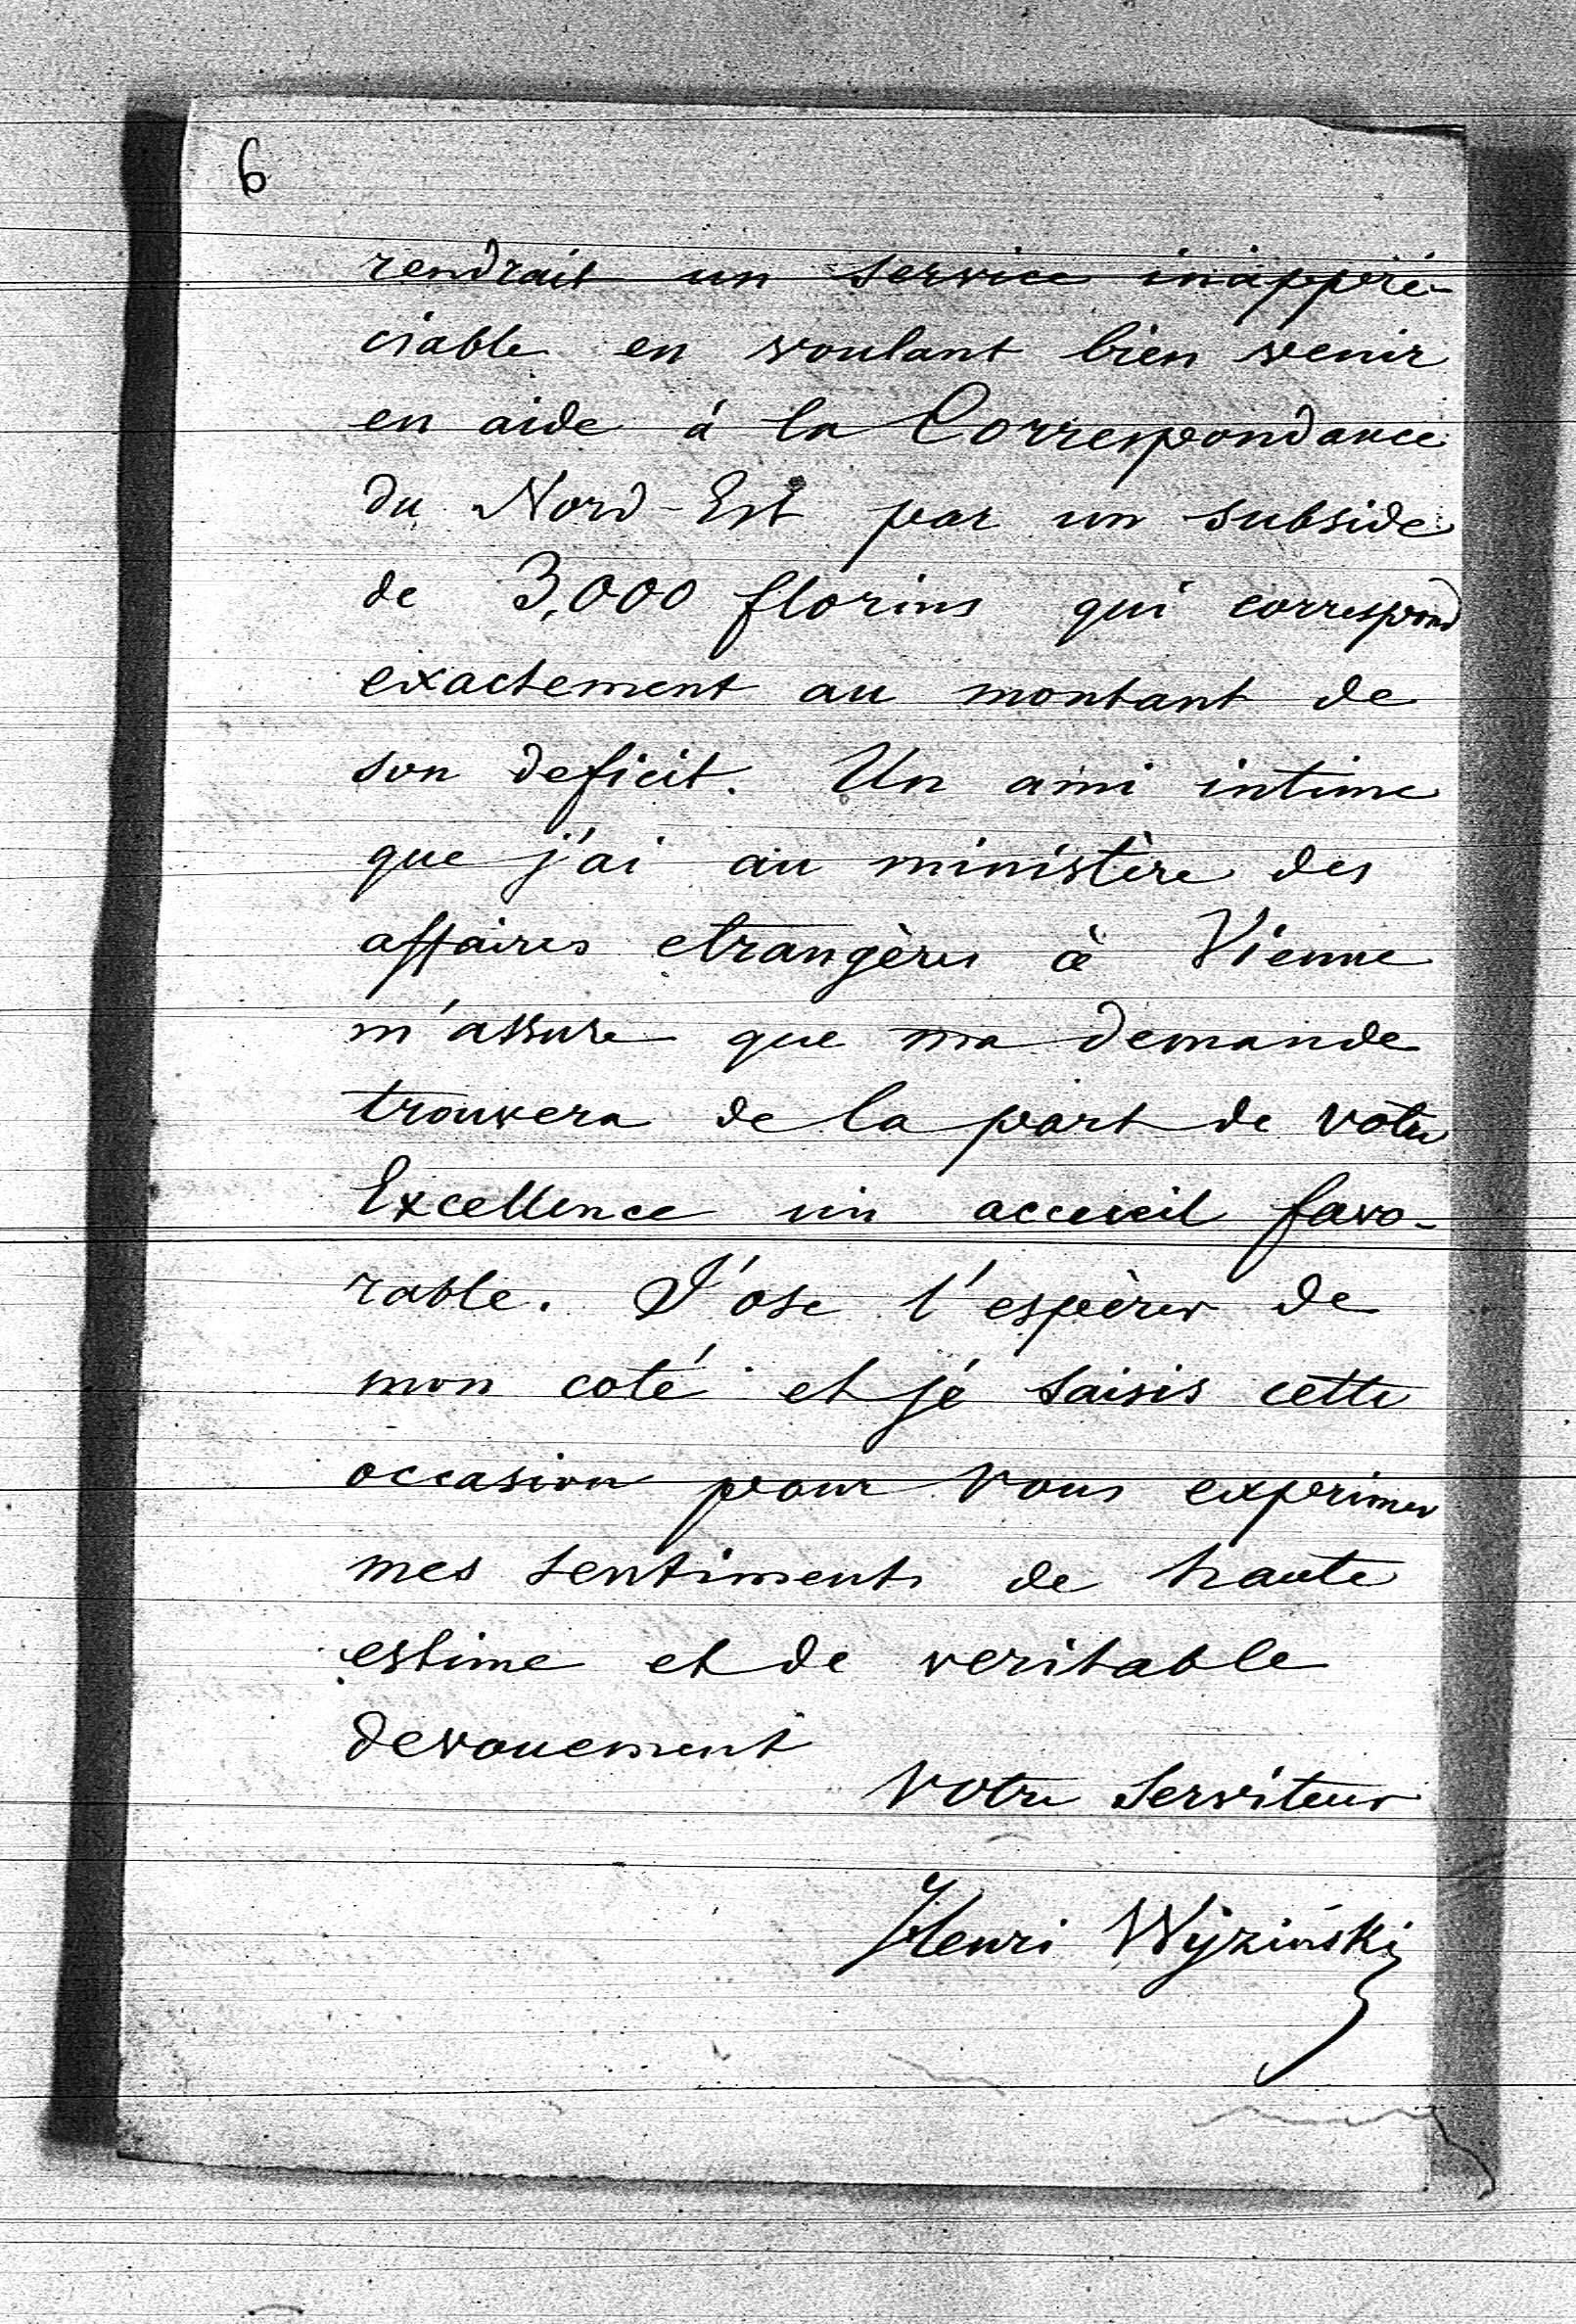 6
rendrait un service inappré-
ciable en voulant bien venir
en aide à la Correspondance
du Nord-Est par un subside
de 3,000 florins qui correspond
exactement au montant de
son deficit. Un ami intime
que j'ai au ministère des
affaires etrangères à Vienne
m'assure que ma demande
trouvera de la part de votre
Excellence un accueil favo-
rable. J'ose l'espèrer de
mon coté et je saisis cette
occasion pour Vous exprimer
mes sentiments de haute
estime et de veritable
devouement
Votre serviteur
Henri Wyziński